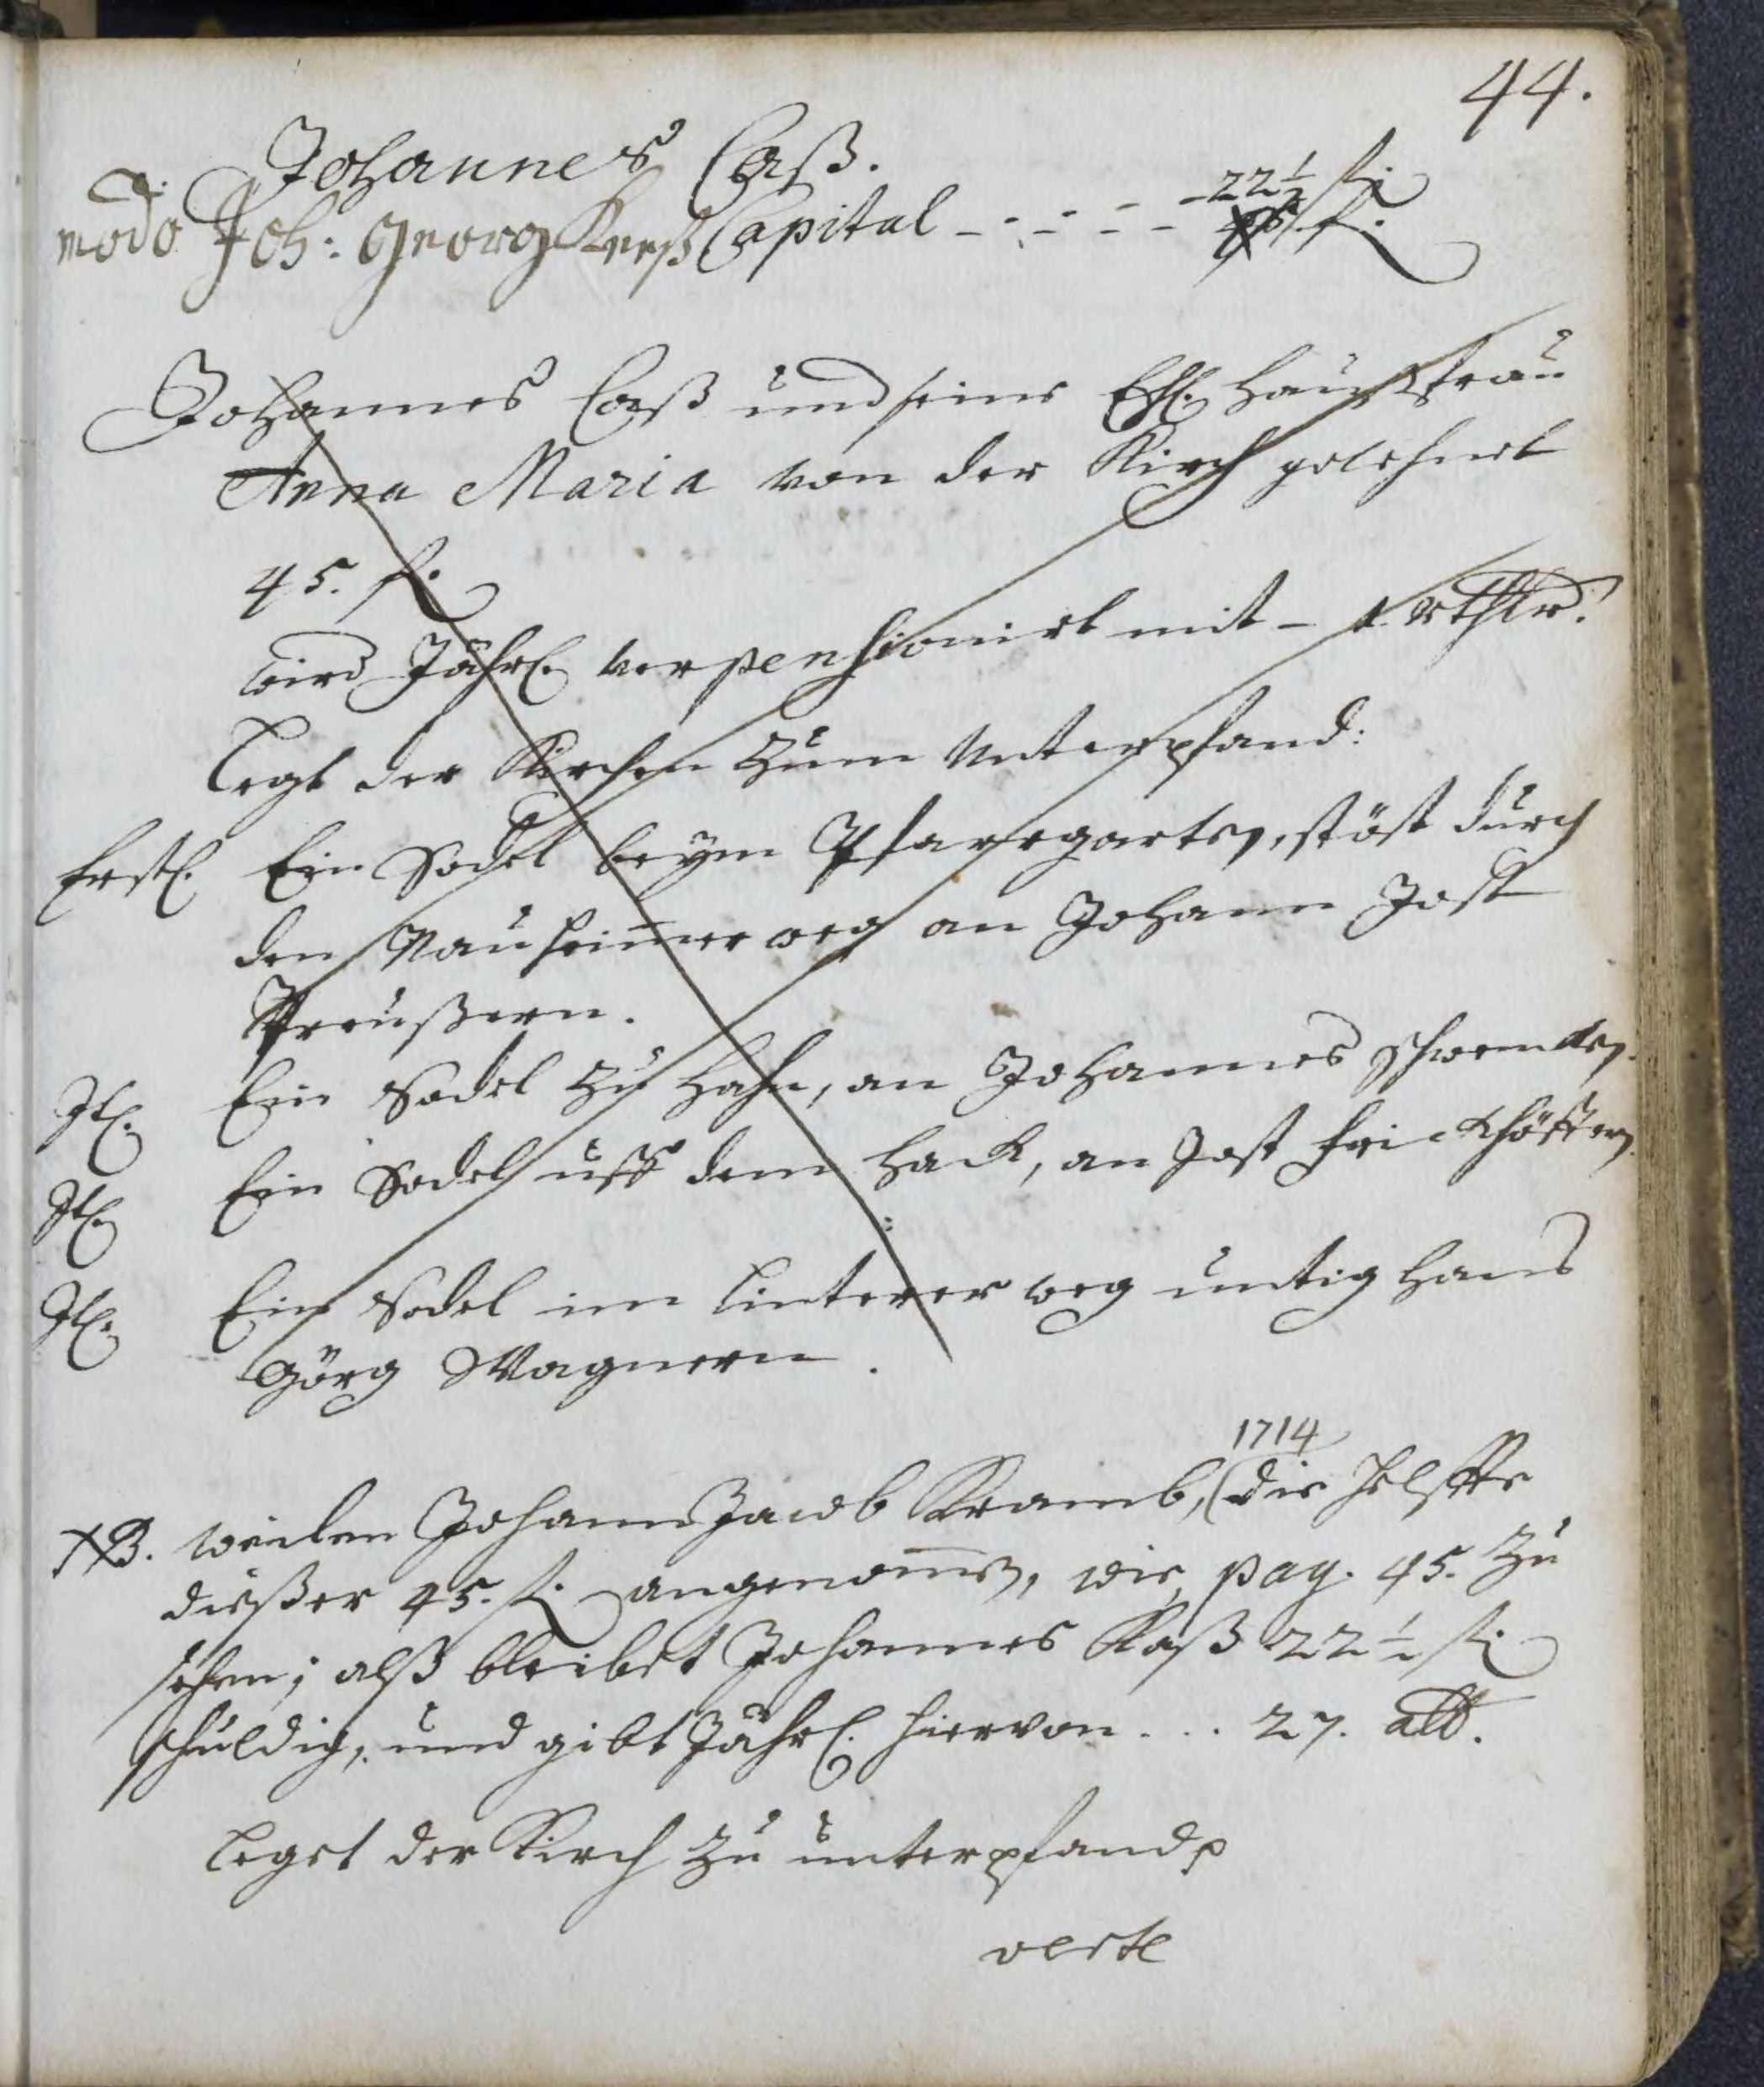 44.
Johannes Caß.
modo Joh: Georg Kreß Capital - - - - - 22½ fl:
45 fl.
Johannes Caß und seine Ehl. Haußfrau
Anna Maria von der Kirch gelehnet
45. fl.
Wird Jährl. verpensionirt mit - 1 Rthlr.
Legt der Kirchen zum Unterpfand:
Erstl. Ein Sodel beym Pfarrgarten, stöst durch
den Nauheimer weg an Johann Jost
Preußern.
It. Ein Sodel zu Hahn, an Johannes Schwencken.
It. Ein Sodel uff dem Hack, an Jost Frickhöffern.
It. Ein Sodel im Linterer weg untig Hans
Görg Wagnern.
1714
NB. weilen Johann Jacob Kramb, die helffte
dießer 45. fl. angenommen, wie pag. 45. zu
sehen; alß bleibet Johannes Kaß 22½ fl.
schuldig, und gibt Jährl. hiervon ... 27. alb.
Leget der Kirch zu unterpfand
verte